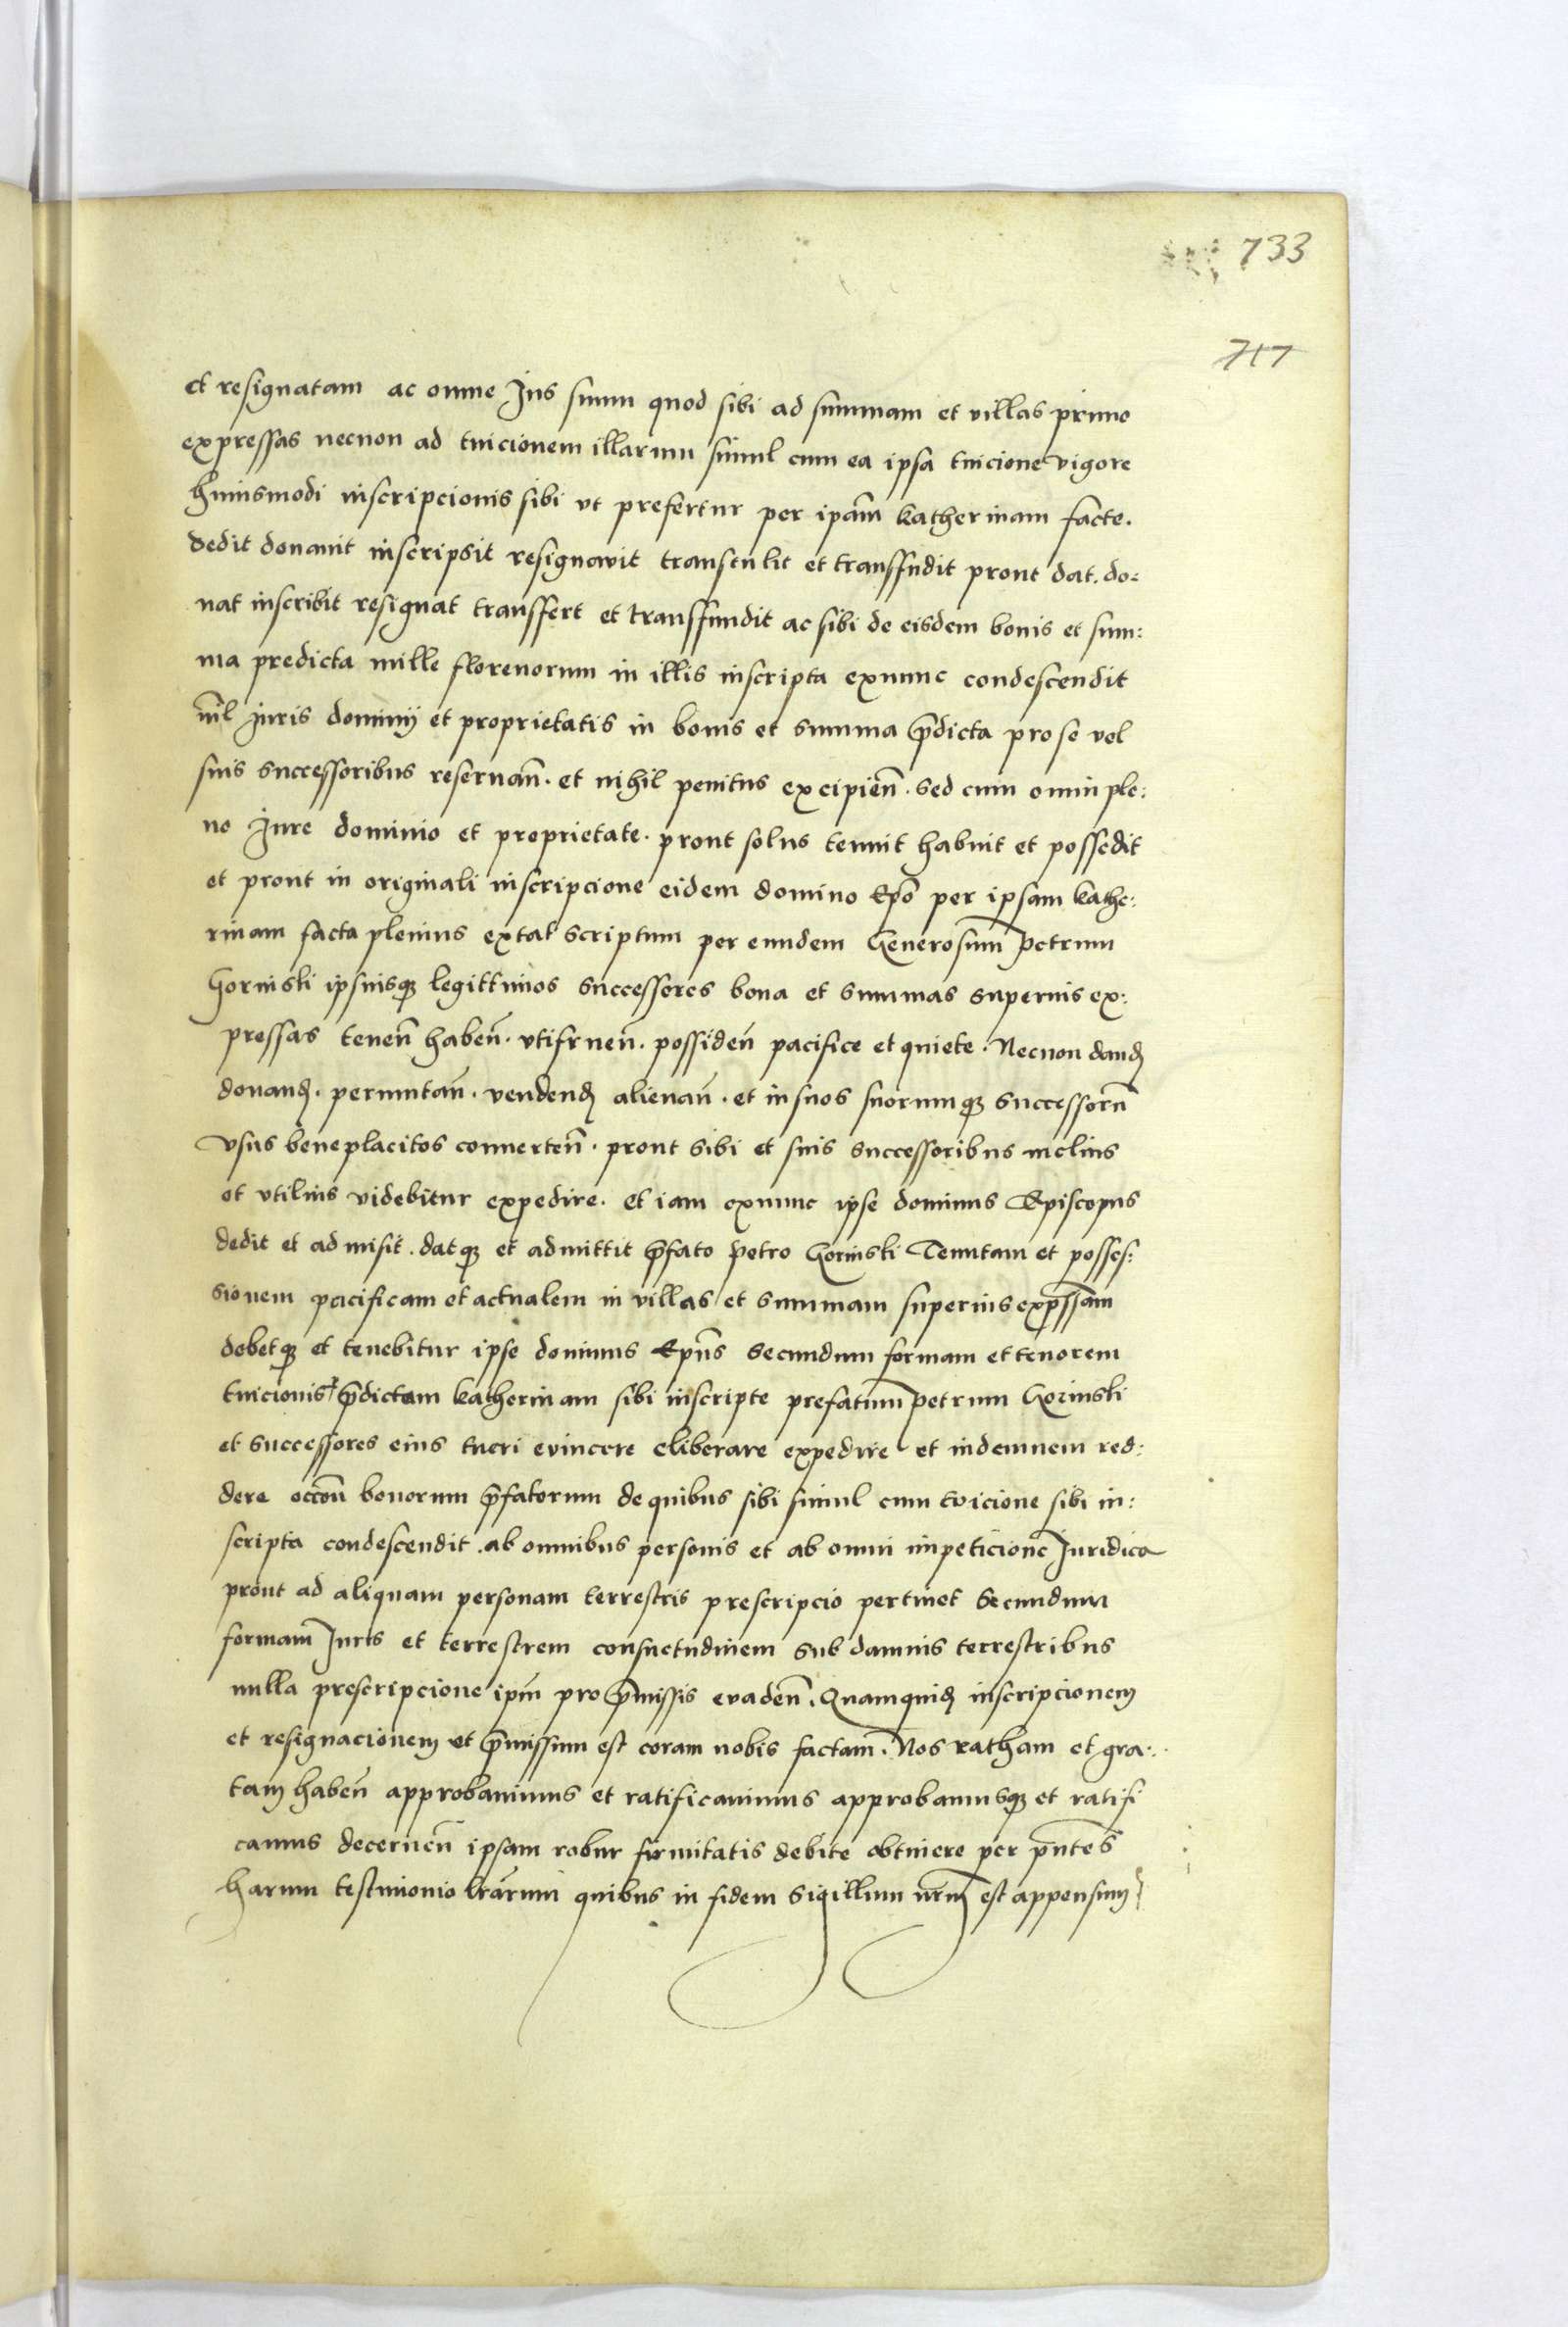 733
717
et resignatam ac omne Jus suum quod sibi ad summam et villas primo
expressas necnon ad tuicionem illarum simul cum ea ipsa tuicione vigore
huiusmodi inscripcionis sibi ut prefertur per ip̄am katherinam facte.
dedit donauit inscripsit resignavit transtulit et transffudit prout dat. do-
nat inscribit resignat transffert et transffundit ac sibi de eisdem bonis et sum:
ma predicta mille florenorum in illis inscripta exnunc condescendit
nil Juris dominij et proprietatis in bonis et summa p̄dicta pro se vel
suis successoribus reseruan̄. et nihil penitus excipien̄. sed cum omni ple:
no Jure dominio et proprietate. prout solus tenuit habuit et possedit
et prout in originali inscripcione eidem domino Ep̄o per ipsam kathe:
rinam facta plenius extat scriptum per eundem Generosum petrum
Gorinski ipsiusqꝫ legittimos successores bona et summas superius ex:
pressas tenen̄ haben̄. utifruen̄. possiden̄ pacifice et quiete. Necnon dand
donand. permutan̄. vendend alienan̄. et in suos suorumqꝫ successorū
vsus beneplacitos conuerten̄. prout sibi et suis successoribus melius
et vtilius videbitur expedire. et iam exnunc ipse dominus Episcopus
dedit et admisit. datqꝫ et admittit p̄fato petro Gorinski Tenutam et posses:
sionem pacificam et actualem in villas et summam superius exp̄ssam
debetqꝫ et tenebitur ipse dominus Ep̄us secundum formam et tenorem
tuicionis p̄dictam katherinam sibi inscripte prefatum petrum Gorinski
et successores eius tueri evincere eliberare expedire et indemnem red:
dere occōn bonorum p̄fatorum de quibus sibi simul cum tuicione sibi in:
scripta condescendit. ab omnibus personis et ab omni impeticione Juridica
prout ad aliquam personam terrestris prescripcio pertinet Secundum
formam Juris et terrestrem consuetudinem sub damnis terrestribus
nulla prescripcione ip̄m pro p̄missis evaden̄. Quamquid inscripcionem
et resignacionem ut p̄missum est coram nobis factam. Nos ratham et gra:
tam haben̄ approbauimus et ratificauimus approbamusqꝫ et ratifi
camus decernen̄ ipsam robur firmitatis debite obtinere per p̄ntes
harum testimonio lr̄arum quibus in fidem Sigillum nr̄m est appensum